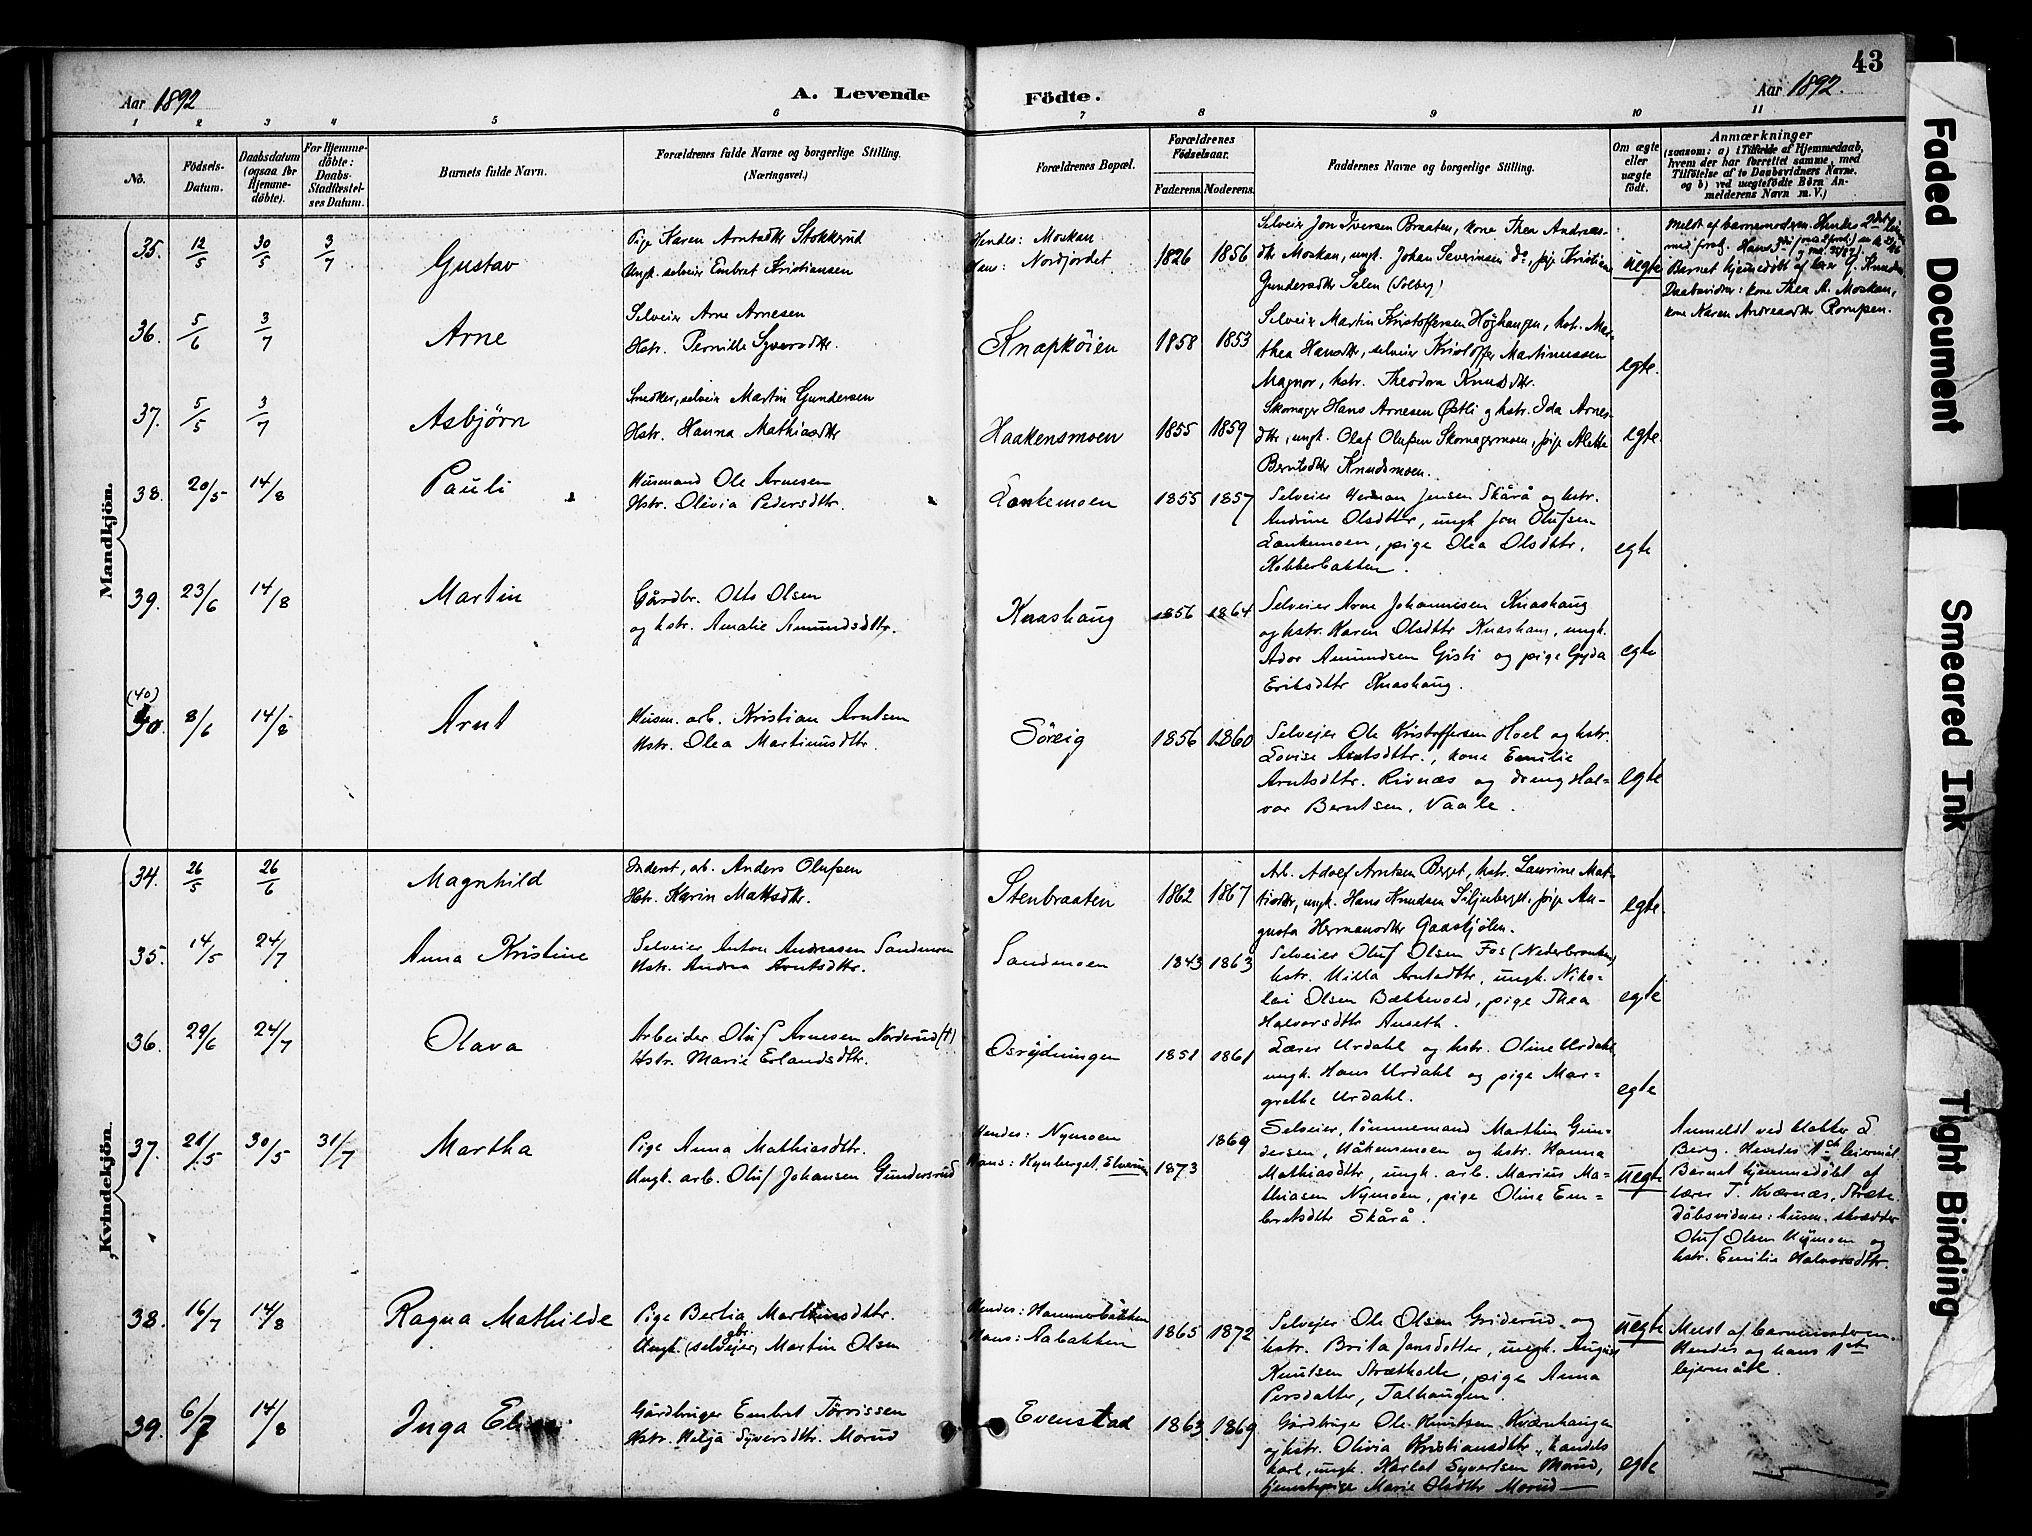 43
Aar 1892 A. Levende Födte. Aar 1892.
1 2 3 4 5 6 7 8 9 10 11
No.
Födsels-Datum.
Daabsdatum (ogsaa for Hjemme-döbte).
For Hjemme-döbte: Daabs-Stadfæstel-ses Datum.
Barnets fulde Navn.
Forældrenes fulde Navne og borgerlige Stilling. (Næringsvei.)
Forældrenes Bopæl.
Forældrenes Födselsaar.
Faderens. Moderens.
Faddernes Navne og borgerlige Stilling.
Om ægte eller uægte födt.
Anmærkninger
(saasom: a) i Tilfælde af Hjemmedaab,
hvem der har forrettet samme, med
Tilföielse af to Daabsvidners Navne,
og b) ved uægtefödte Börn An-
melderens Navn m. V.)
Mandkjön.
35. 12/5 30/5 3/7 Gustav
Pige Karen Arntsdtr Stokkerud
Ungk. selveier Embret Kristiansen
Hendes: Moskan
Hans: Nordjordet
1826 1856
Selveier Jon Iversen Braaten, kone Thea Andreas-
dtr Moskan, ungk. Johan Severinsen do, pige Kristiane
Gundersdtr Sælen (Solberg)
uegte
Meldt af barnemoderen. Hendes 2det
Barnet hjemmedøbt af lærer G. Knudsen
Daabsvidner: kone Thea A. Moskan,
kone Karen Andreasdtr Rompen.
36. 5/6 3/7 Arne
Selveier Arne Arnesen
Hstr. Pernille Syversdtr.
Knapkøien 1858 1853
Selveier Martin Kristoffersen Høyhaugen, hstr. Ma-
thea Hansdtr, selveier Kristoffer Martinussen
Magnor, hstr. Theodora Knudsdtr.
egte.
37. 5/5 3/7 Asbjørn
Snedker, selveier Martin Gundersen
Hstr. Hanna Mathiasdtr
Haakensmoen 1855 1859
Skomager Hans Arnesen Østli og hstr. Ida Arnes-
dtr, ungk. Olaf Olufsen Skomagermoen, pige Alette
Berntsdtr Knudsmoen.
egte
38. 20/5 14/8 Pauli
Husmand Ole Arnesen
Hstr. Olivia Pedersdtr.
Lankemoen 1855 1857
Selveier Herman Jensen Skårå og hstr.
Andrine Olsdtter, ungk Jon Olufsen
Lankemoen, pige Olea Olsdttr.
Kobberbakken.
egte
39. 23/6 14/8 Martin
Gårdbr. Otto Olsen
og hstr. Amalie Amundsdttr.
Knashaug 1856 1864
Selveier Arne Johannesen Knashaug
og hstr. Karen Olsdttr Knashaug, ungk.
Ador Amundsen Gisti og pige Gyda
Eriksdttr Knashaug.
egte
(40) 40. 8/6 14/8 Arnt
Husm. arb. Kristian Arntsen
Hstr. Olea Martinusdttr.
Söreig 1856 1860
Selveier Ole Kristoffersen Hoel og hstr.
Lovise Arntsdttr., kone Emilie
Arntsdttr. Rivnæs og dreng Hal-
vor Berntsen, Vaale.
egte
Kvindekjön.
34. 26/5 26/6 Magnhild
Inderst, arb. Anders Olufsen
Hstr. Karin Mattsdtr.
Stenbraaten 1862 1867
Arb. Adolf Arntsen Berget, hstr. Laurine Mat-
tisdtr, ungk. Hans Knudsen Siljuberget, pige Au-
gusta Hermansdtr Gaaskjölen.
egte.
35. 14/5 24/7 Anna Kristine
Selveier Anton Andreasen Sandmoen
Hstr. Andrea Arntsdttr.
Sandmoen 1843 1863
Selveier Oluf Olsen Fos (Nederbraaten)
hstr. Milla Arntsdttr, ungk. Niko-
lai Olsen Bækkevold, pige Thea
Halvorsdttr Anseth.
egte
36. 29/6 24/7 Olava
Arbeider Oluf Arnesen Norderud (†)
Hstr. Marie Erlandsdttr.
Osrydningen 1851 1861
Lærer Urdahl og hstr. Oline Urdahl,
ungk. Hans Urdahl og pige Mar-
grethe Urdahl.
egte
37. 21/5 30/5 31/7 Martha
Pige Anna Mathiasdttr.
Ungk. arb. Oluf Johansen Gundersrud
Hendes: Nymoen
Hans: Kynberget, Elverum
1873 1869
Selveier, tömmermand Marthin Gun-
dersen, Håkensmoen og hstr. Hanna
Mathiasdttr, ungk. arb. Marius Ma-
thiasen Nymoen, pige Oline Em-
bretsdttr Skårå.
uegte
Anmeldt ved klokker
Berg. Hendes 1ste leiermål.
Barnet hjemmedöbt af
lærer T. Kværnæs, Stræte
dåbsvidner: husm. skrædder
Oluf Olsen Nymoen og
hstr. Emilie Halvorsdttr.
38. 16/7 14/8 Ragna Mathilde
Pige Berthe Martinusdttr.
Ungk. (selveier) gbr. Martin Olsen
Hendes: Hammerbakken
Hans: Aabakken
1865 1872
Selveier Ole Olsen Griderud og
hstr. Brita Jonsdotter, ungk. August
Knutsen Strætkolte, pige Anna
Persdatter, Talhaugen.
uegte
Meldt af barnemoderen.
Hendes og hans 1ste
leiermål.
39. 6/7 14/8 Inga Eline
Gårdbruger Embret Törrissen
Hstr. Helga Syversdttr. Morud
Evenstad 1863 1869
Gårdbruger Ole Knutsen Kværnhaugen
og hstr. Olivia Kristiansdttr, handels
karl, ungk. Karlot Syvertsen Morud,
tjenestepige Marie Olsdttr Morud
egte
Faded Document
Smeared Ink
Tight Binding